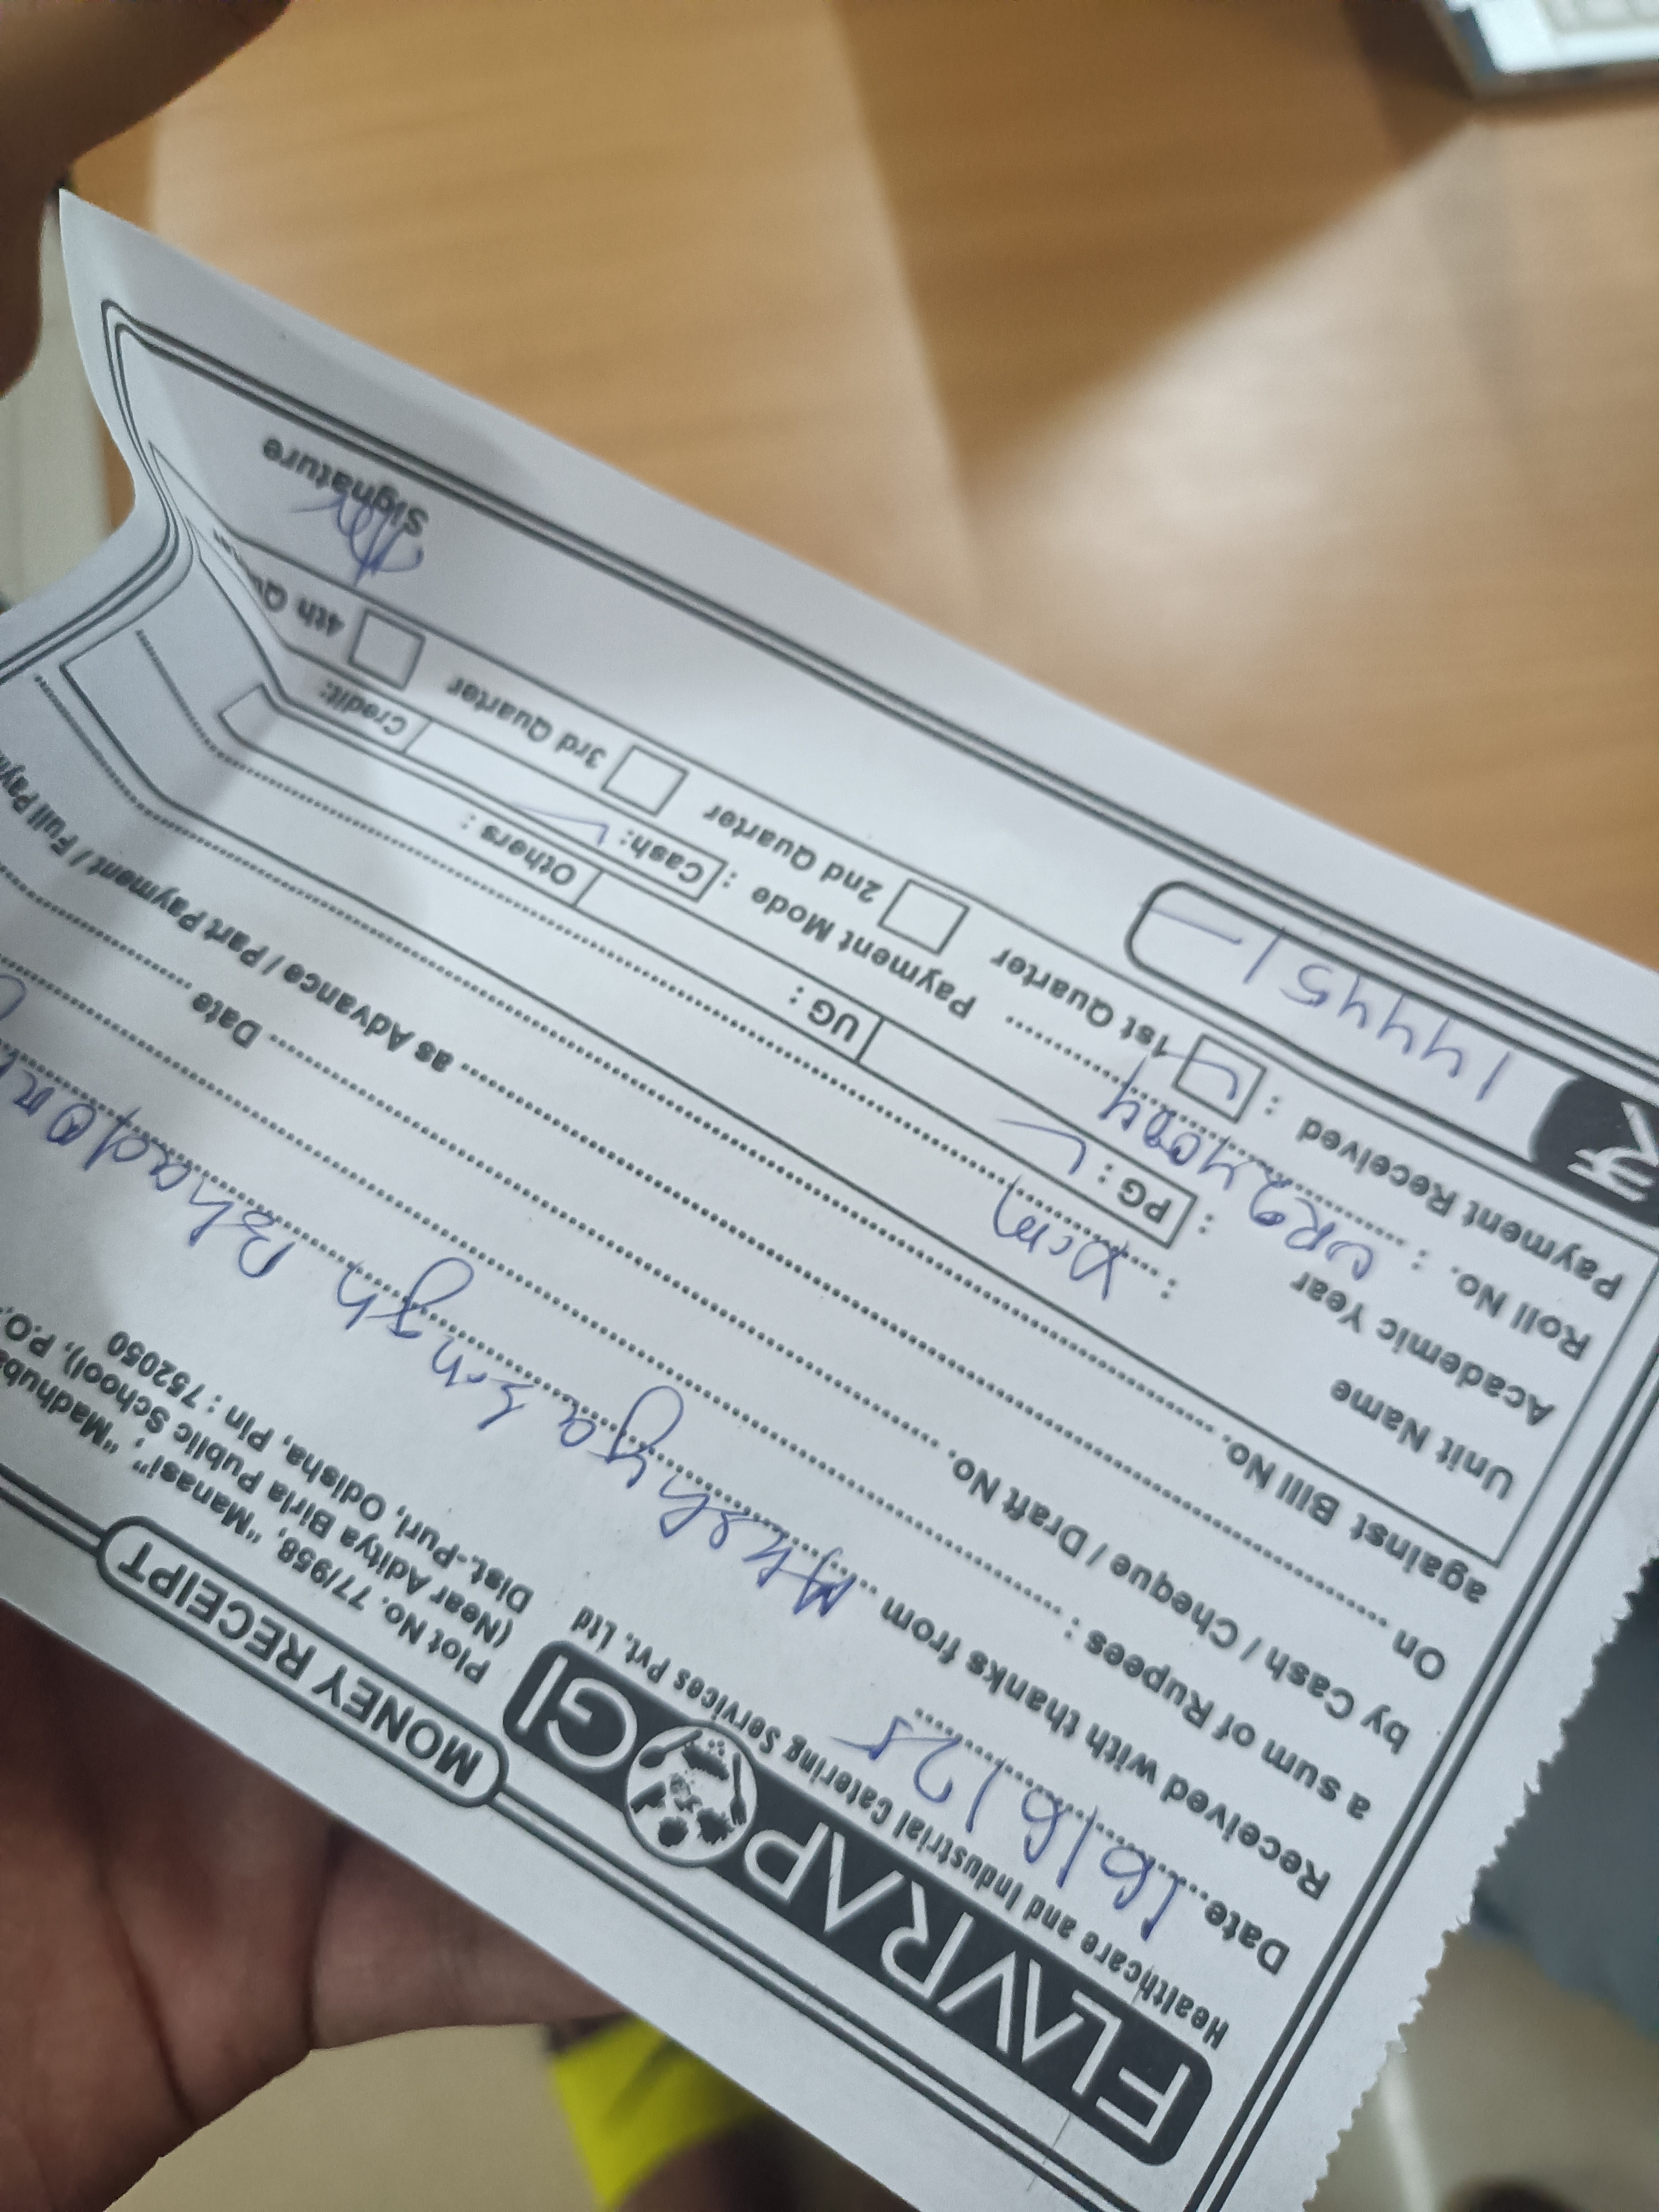 MONEY RECEIPT
FLAVRAPOGI
Healthcare and Industrial Catering Services Pvt. Ltd
Plot No. 77/958, "Manasi", "Madhuba
(Near Aditya Birla Public School), P.O.
Dist.-Puri, Odisha, Pin : 752050
Date 16/6/25
Received with thanks from
a sum of Rupees :
by Cash / Cheque / Draft No. Date
On as Advance / Part Payment / Full Paym
against Bill No.
Unit Name : Xim
Academic Year : PG : UG : Others :
Roll No. : Payment Mode : Cash: Credit:
Payment Received : 1st Quarter 2nd Quarter 3rd Quarter 4th Qu
₹ 144451- Signature